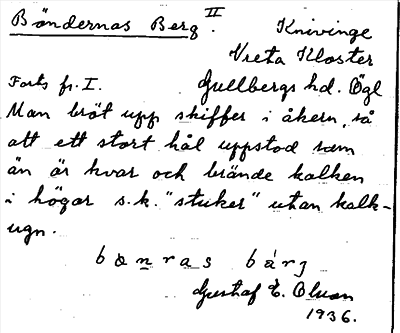 Böndernas Berg. II Knivinge
Vreta Kloster
Forts fr. I. Gullbergs hd. Ögl
Man bröt upp skiffer i åkern, så
att ett stort hål uppstod som
än är kvar och brände kalken
i högar s.k. "stuker" utan kalk-
ugn.
bønras bárj
Gustaf E. Olson
1936.